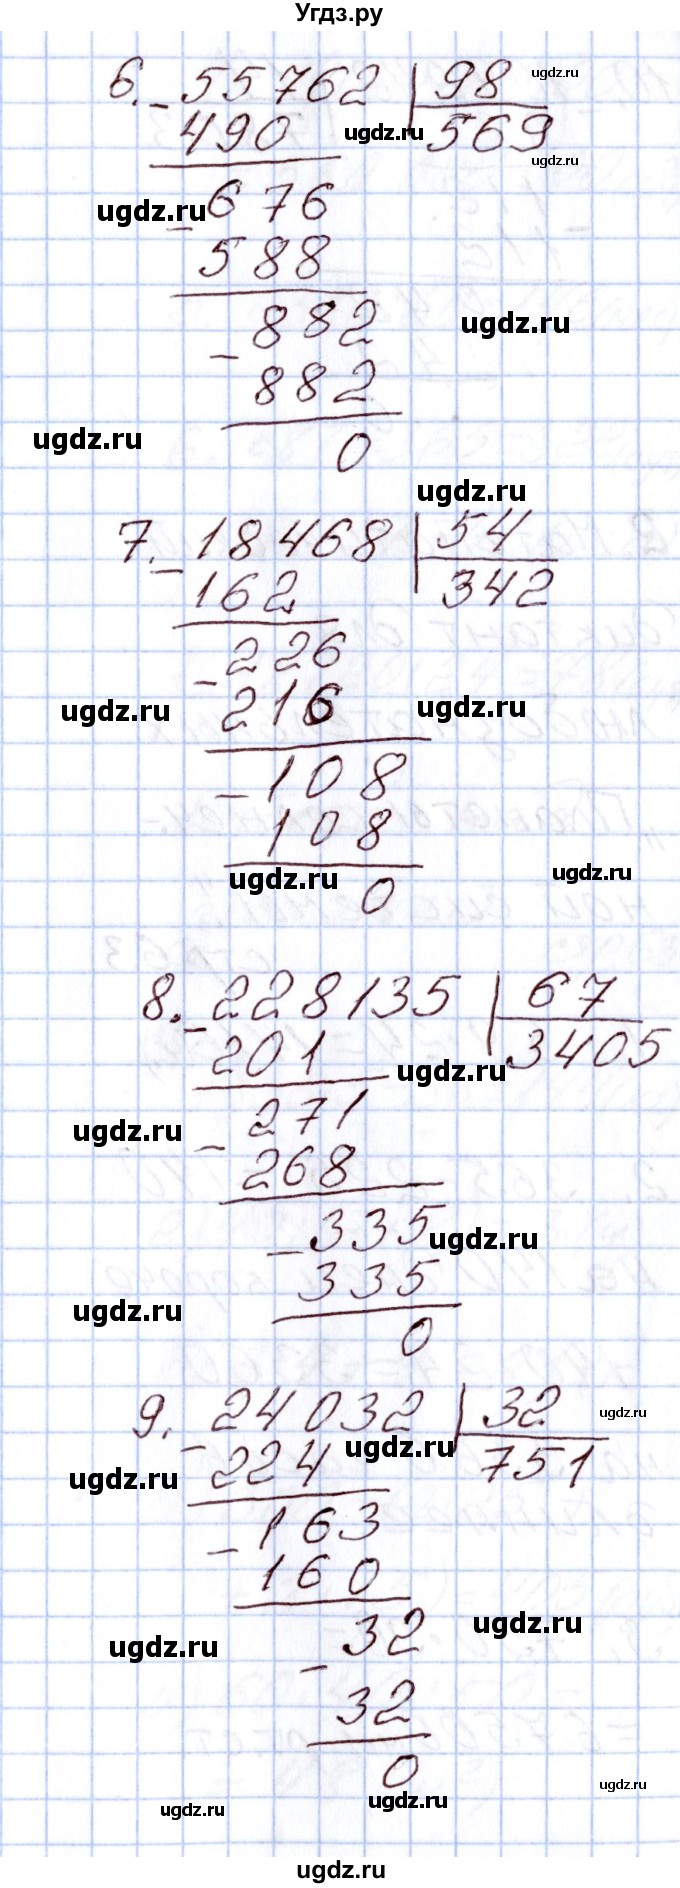 Угдз.ру
6. - 55762 | 98
ugdz.ru
490 569
ugdz.ru
ugdz.ru
- 676
ugdz.ru
588
- 882
ugdz.ru
882
ugdz.ru
0
ugdz.ru
7. - 18468 | 54
162 342
- 226
216
ugdz.ru
ugdz.ru
- 108
108
ugdz.ru
ugdz.ru
0
8. - 228135 | 67
201 3405
ugdz.ru
- 271
ugdz.ru
268
- 335
ugdz.ru
335
ugdz.ru
0
9. - 24032 | 32
ugdz.ru
ugdz.ru
224 751
ugdz.ru
- 163
160
- 32
ugdz.ru
ugdz.ru
32
0
ugdz.ru
ugdz.ru
ugdz.ru
ugdz.ru